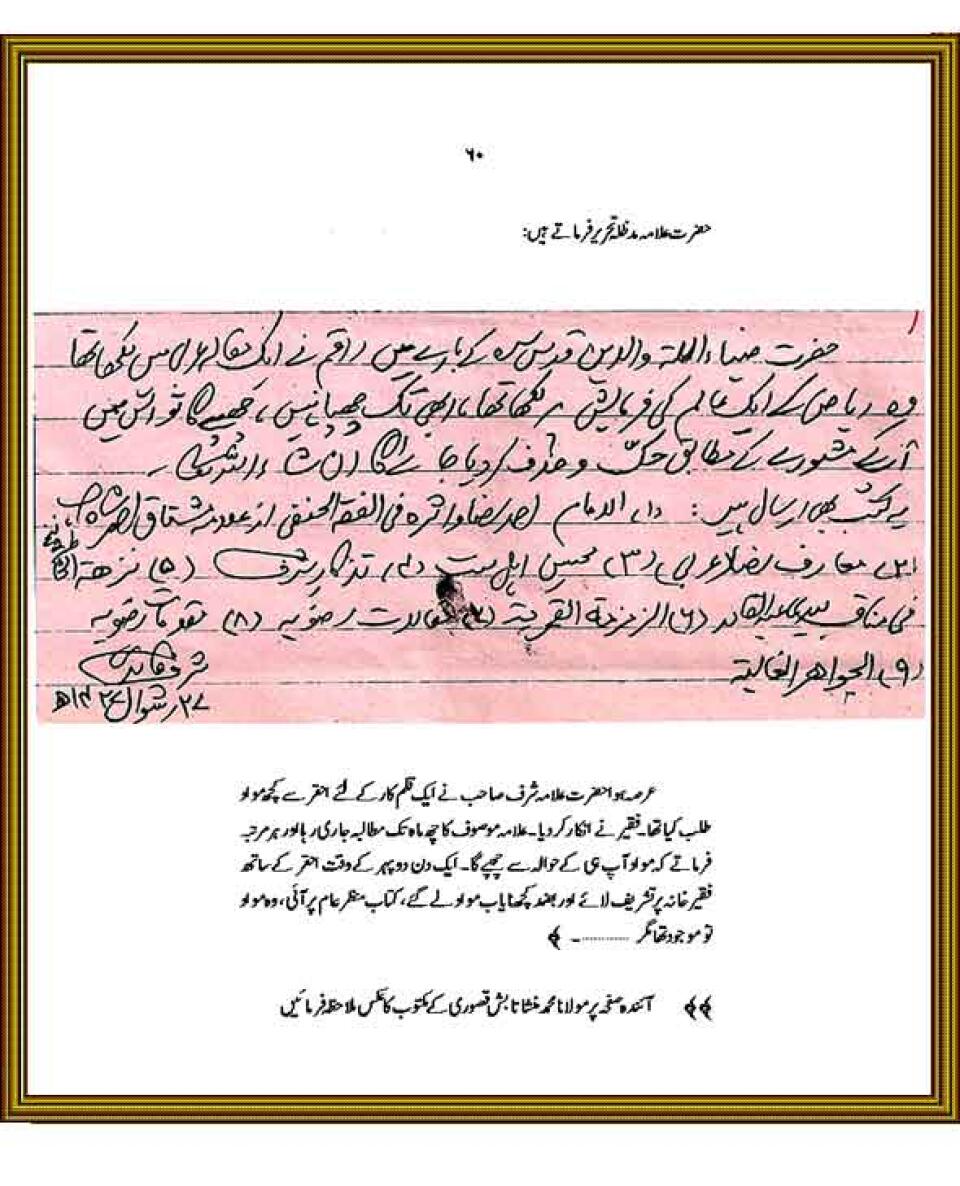 ۶۰
حضرت علامہ مدظلہ تحریر فرماتے ہیں:
حضرت ضیاء الملۃ والدین قدس سرہ کے بارے میں راقم نے ایک مقالہ عربی میں لکھا تھا
وہ ریاض کے ایک عالم کی فرمائش پر لکھا تھا، ابھی تک چھپا نہیں، چھپے گا تو اس میں
آپ کے مشورے کے مطابق حک و حذف کر دیا جائے گا ان شاء اللہ تعالیٰ۔
یہ کتب بھی ارسال ہیں: (۱) الامام احمد رضا واثرہ فی الفقہ الحنفی از مشتاق احمد شاہ
(۲) معارف رضا عربی (۳) محسن اہل سنت (۴) تذکار شرف (۵) نزھۃ
فی مناقب سیدی عبدالقادر (۶) الزمزمۃ القمریۃ (۷) مقالات رضویہ (۸) رضویہ
(۹) الجواھر الغالیۃ
شرف قادری
۲۷ شوال ۱۴۲۴ھ
عرصہ ہوا حضرت علامہ شرف صاحب نے ایک قلم کار کے لئے احقر سے کچھ مواد
طلب کیا تھا۔ فقیر نے انکار کر دیا۔ علامہ موصوف کا چھ ماہ تک مطالبہ جاری رہا اور ہر مرتبہ
فرماتے کہ مواد آپ ہی کے حوالہ سے چھپے گا۔ ایک دن دوپہر کے وقت احقر کے ساتھ
فقیر خانہ پر تشریف لائے اور بضد کچھ نایاب مواد لے گئے، کتاب منظر عام پر آئی، وہ مواد
تو موجود تھا مگر ............۔ ﴾
﴾﴾ آئندہ صفحہ پر مولانا محمد منشا تابش قصوری کے مکتوب کا عکس ملاحظہ فرمائیں